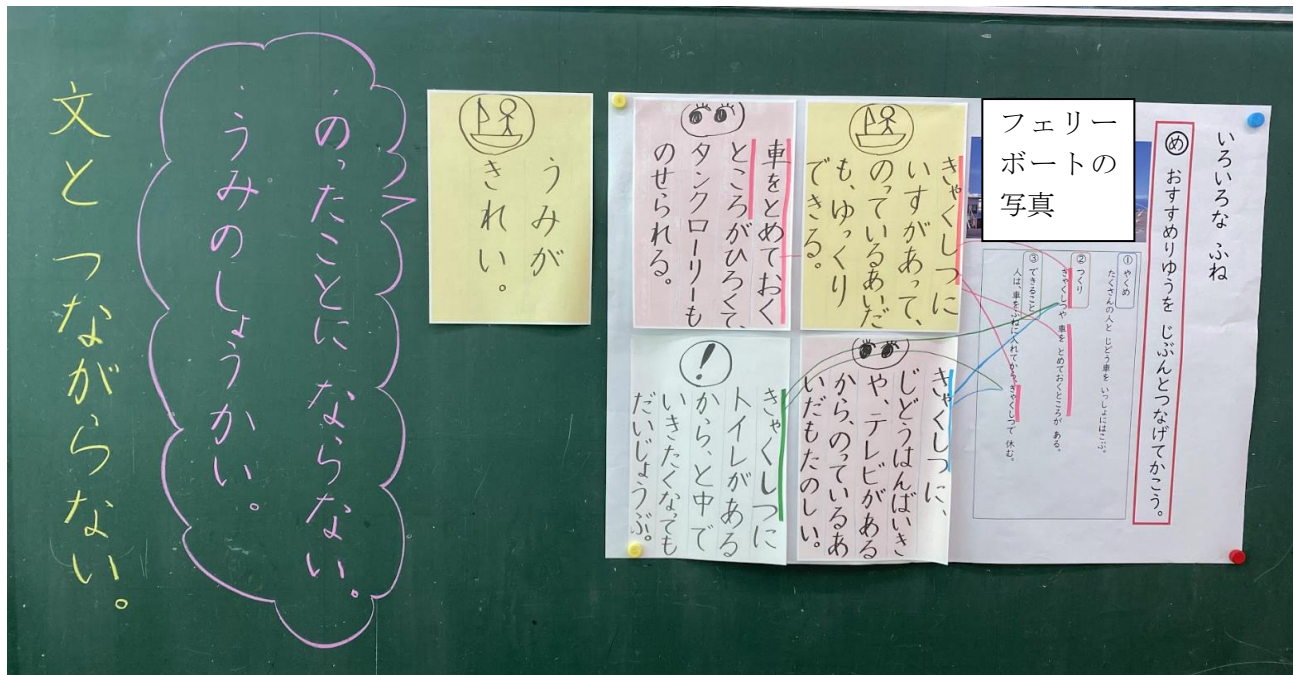 いろいろな ふね
め おすすめりゆうを じぶんとつなげてかこう。
フェリー
ボートの
写真
① やくめ
たくさんの人と じどう車を いっしょにはこぶ。
② つくり
きゃくしつや 車を とめておくところが ある。
③ できること
人は、車をふねに入れてから、きゃくしつで 休む。
きゃくしつに
いすがあって、
のっているあいだ
も、ゆっくり
できる。
車をとめておく
ところがひろくて、
タンクローリーも
のせられる。
きゃくしつに、
じどうはんばいき
や、テレビがある
から、のっているあ
いだもたのしい。
!
きゃくしつに
トイレがある
から、と中で
いきたくなっても
だいじょうぶ。
うみが
きれい。
・のったことに ならない。
・うみのしょうかい。
文と つながらない。